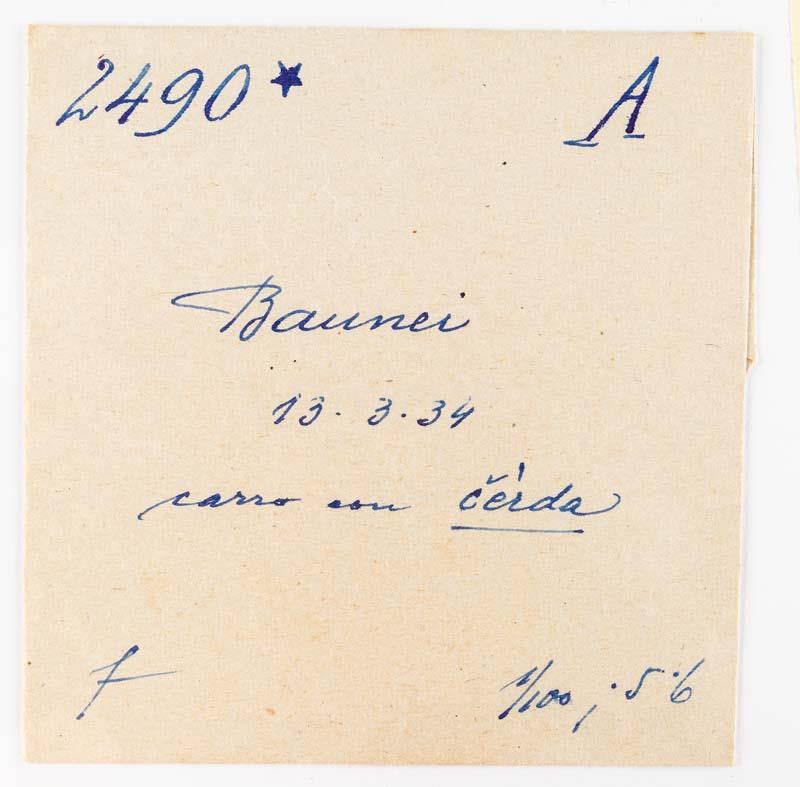 2490★ A
Baunei
13.3.34
carro con čėrda
f 1/100 ; 5·6